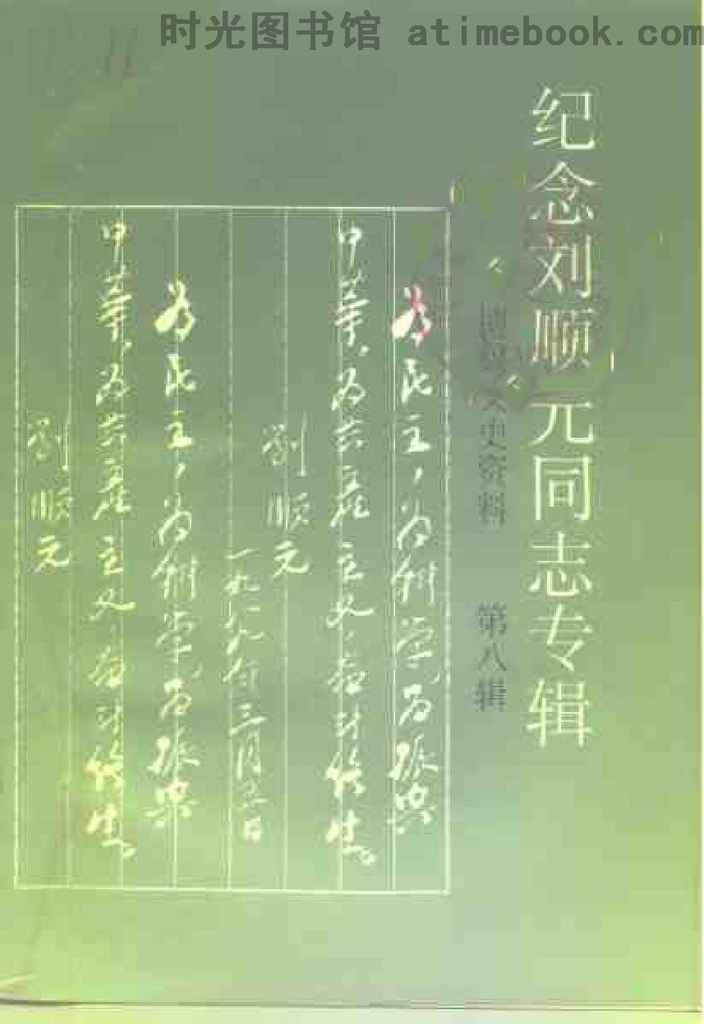 时光图书馆 atimebook.com
纪念刘顺元同志专辑
文史资料 第八辑
为民主，为科学，为振兴
中华，为共产主义，奋斗终生。
刘顺元
一九八九年三月五日
为民主，为科学，为振兴
中华，为共产主义，奋斗终生。
刘顺元